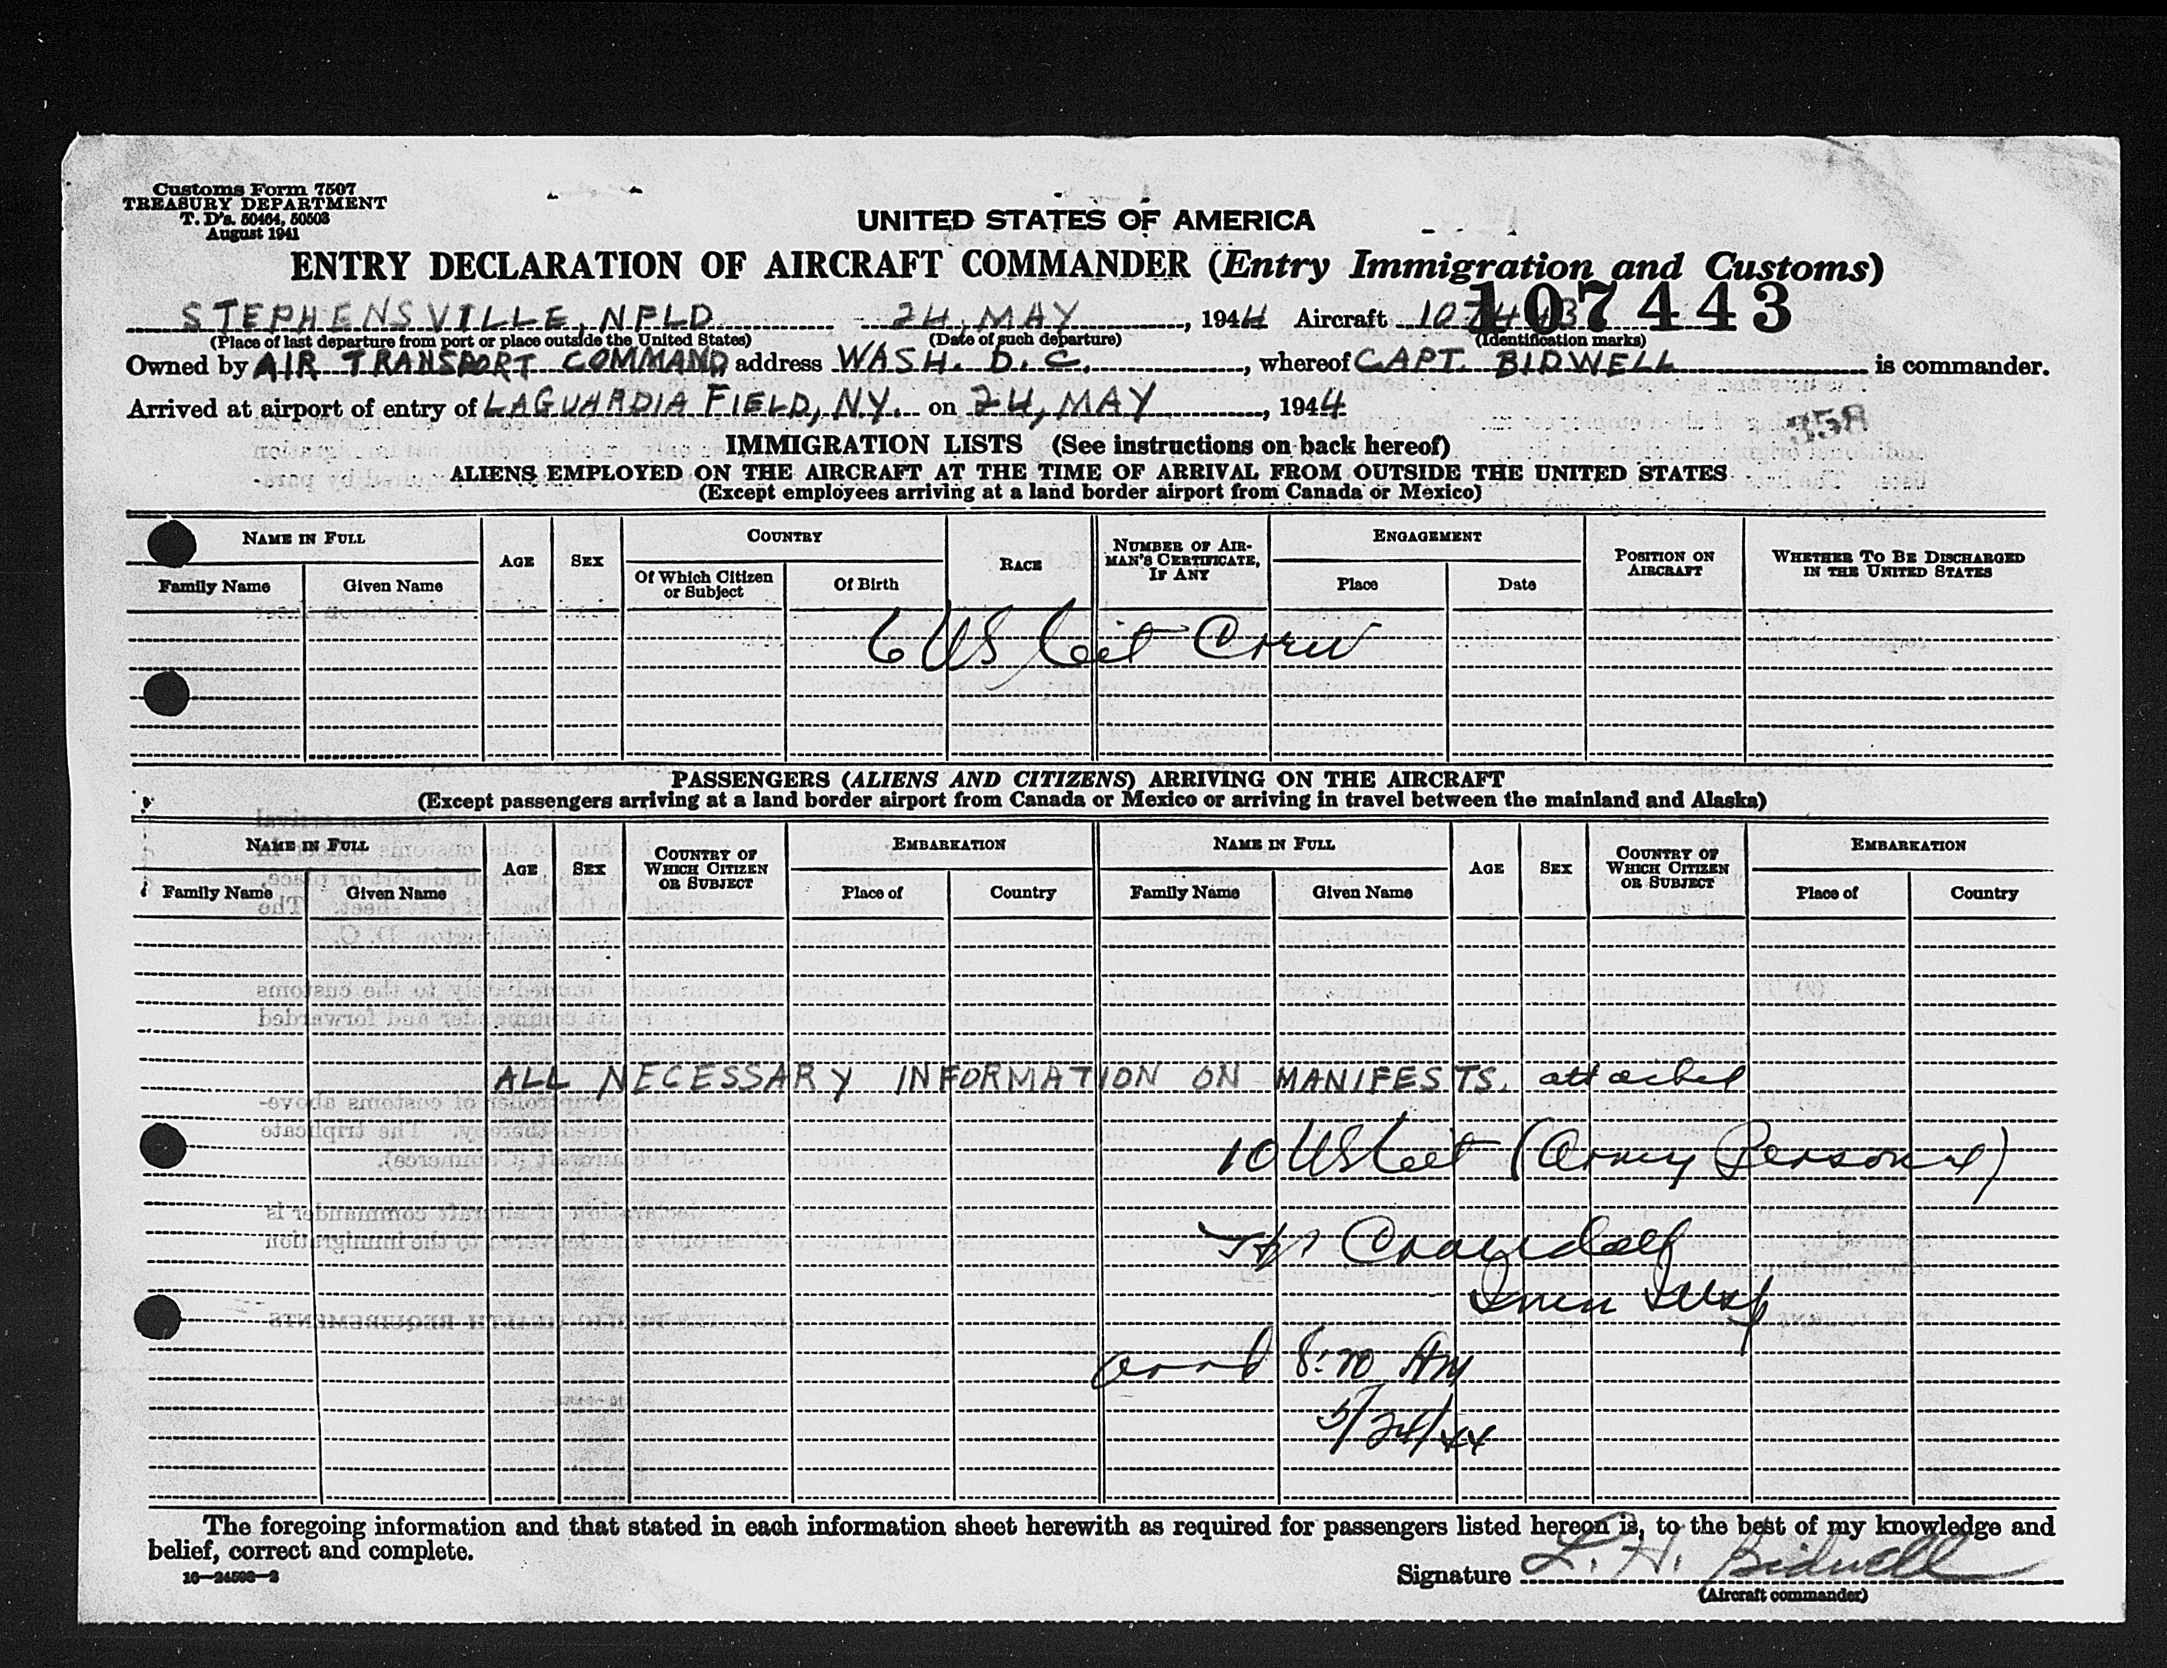 Customs Form 7507
TREASURY DEPARTMENT
T. D's. 50464, 50503
August 1941
UNITED STATES OF AMERICA
ENTRY DECLARATION OF AIRCRAFT COMMANDER (Entry Immigration and Customs)
107443
STEPHENSVILLE, NFLD 24, MAY, 1944 Aircraft 107443
(Place of last departure from port or place outside the United States) (Date of such departure) (Identification marks)
Owned by AIR TRANSPORT COMMAND address WASH. D.C., whereof CAPT. BIDWELL is commander.
Arrived at airport of entry of LAGUARDIA FIELD, NY. on 24, MAY, 1944
358
IMMIGRATION LISTS (See instructions on back hereof)
ALIENS EMPLOYED ON THE AIRCRAFT AT THE TIME OF ARRIVAL FROM OUTSIDE THE UNITED STATES
(Except employees arriving at a land border airport from Canada or Mexico)
NAME IN FULL
Family Name
Given Name
AGE
SEX
COUNTRY
Of Which Citizen or Subject
Of Birth
RACE
NUMBER OF AIRMAN'S CERTIFICATE, IF ANY
ENGAGEMENT
Place
Date
POSITION ON AIRCRAFT
WHETHER TO BE DISCHARGED IN THE UNITED STATES
6 US Cit Crew
PASSENGERS (ALIENS AND CITIZENS) ARRIVING ON THE AIRCRAFT
(Except passengers arriving at a land border airport from Canada or Mexico or arriving in travel between the mainland and Alaska)
NAME IN FULL
Family Name
Given Name
AGE
SEX
COUNTRY OF WHICH CITIZEN OR SUBJECT
EMBARKATION
Place of
Country
NAME IN FULL
Family Name
Given Name
AGE
SEX
COUNTRY OF WHICH CITIZEN OR SUBJECT
EMBARKATION
Place of
Country
ALL NECESSARY INFORMATION ON MANIFESTS. attached
10 US Cit (Army Personnel)
Crandall
Imm Insp
arrd 8:20 AM
5/24/44
The foregoing information and that stated in each information sheet herewith as required for passengers listed hereon is, to the best of my knowledge and
belief, correct and complete.
16—24593-2
Signature L. H. Bidwell
(Aircraft commander)